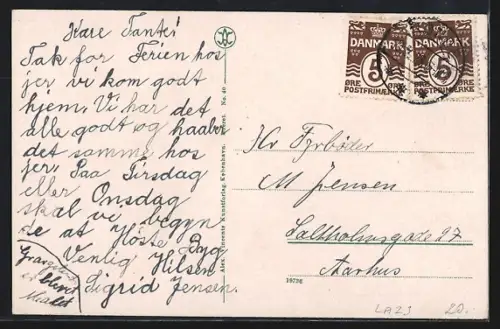 Kære Tante!
Tak for Ferien hos
jer vi kom godt
hjem. Vi har det
alle godt og haaber
det samme hos
jer. Paa Tirsdag
eller Onsdag
skal vi begyn
de at Høste Byg
Venlig Hilsen
Sigrid Jensen.
er blevet
Malet
No. 40
DANMARK
5
ØRE ØRE
POSTFRIMÆRKE
DANMARK
5
ØRE ØRE
POSTFRIMÆRKE
Hr Fyrbøder
M Jensen
Saltholmsgade 27
Aarhus
19796
LA23
20.-